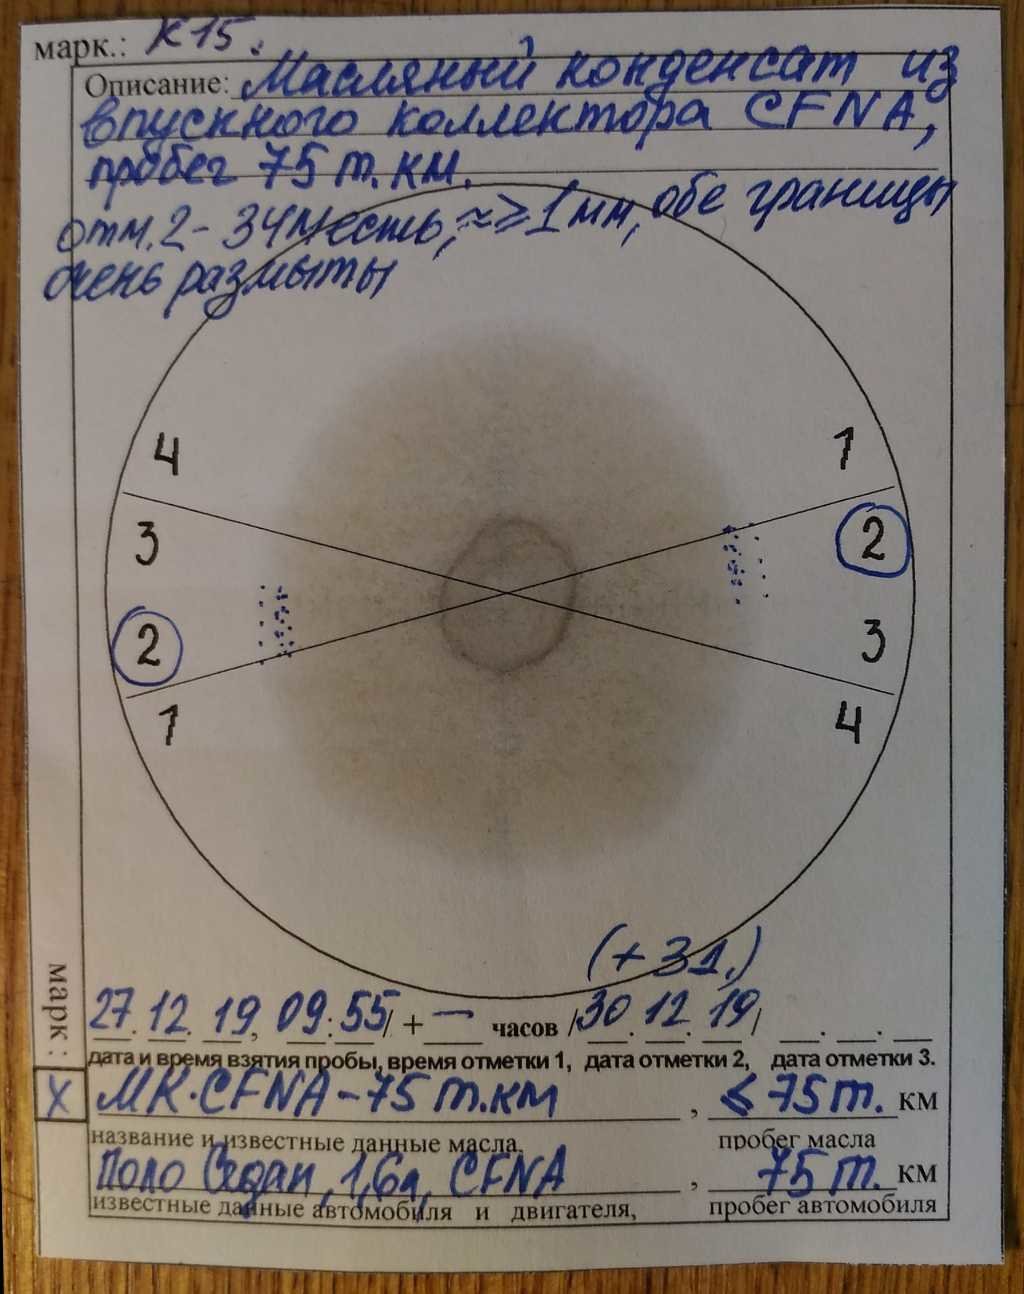 марк.: К15.
Описание: Масляный конденсат из
впускного коллектора CFNA,
пробег 75 т. км.
отм. 2 - ЗЧМ есть, ≈≥1 мм, обе границы
очень размыты
4 1
3 2
2 3
1 4
(+ 31.)
марк:
27. 12. 19, 09:55/ + — часов /30. 12. 19/ . .
дата и время взятия пробы, время отметки 1, дата отметки 2, дата отметки 3.
X МК. CFNA - 75 т.км , ≤ 75 т. км
название и известные данные масла, пробег масла
Поло Седан, 1,6л, CFNA , 75 т. км
известные данные автомобиля и двигателя, пробег автомобиля